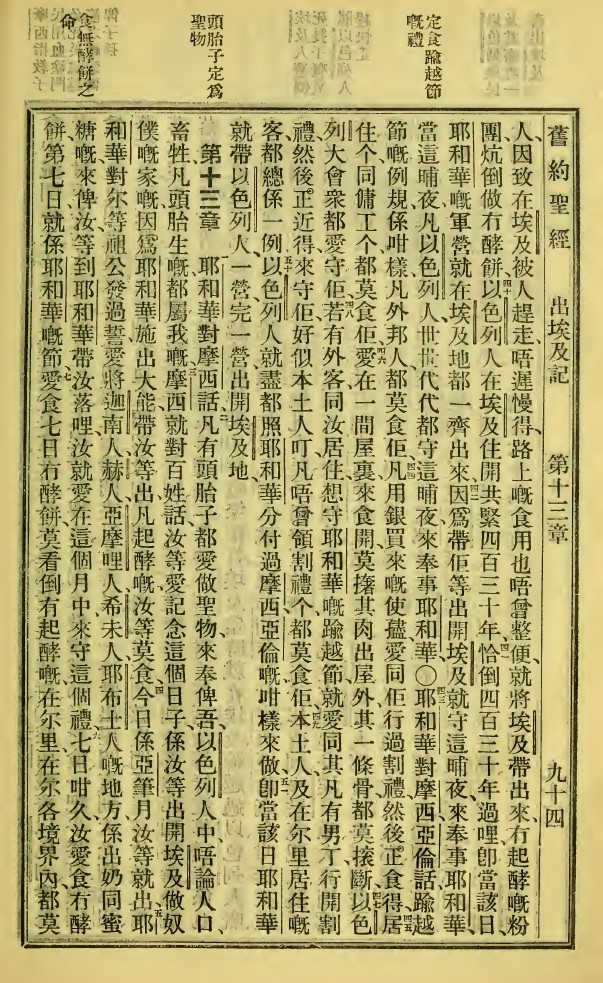 定食踰越節
嘅禮
頭胎子定爲
聖物
食無酵餅之
命
舊約聖經 出埃及記 第十三章 九十四
人、因致在埃及被人趕走、唔遲慢得、路上嘅食用也唔曾整便、就將埃及帶出來冇起酵嘅粉
團、炕倒做冇酵餅、四十以色列人在埃及住開共緊四百三十年、四一恰倒四百三十年過哩、卽當該日、
耶和華嘅軍營就在埃及地都一齊出來、四二因爲帶佢等出開埃及、就守這晡夜、來奉事耶和華、
當這晡夜、凡以色列人世世代代都守這晡夜來奉事耶和華〇四三耶和華對摩西亞倫話、踰越
節嘅例規係咁樣、凡外邦人、都莫食佢、四四凡用銀買來嘅使孻、愛同佢行過割禮、然後正食得、四五居
住个同傭工个、都莫食佢、四六愛在一間屋裏來食開、莫㩜其肉出屋外、其一條骨都莫㨆斷、四七以色
列大會衆都愛守佢、四八若有外客同汝居住、想守耶和華嘅踰越節、就愛同其凡有男丁行開割
禮、然後正近得來守佢、好似本土人叮、凡唔曾領割禮个、都莫食佢、四九本土人、及在尔里居住嘅
客、都總係一例、五十以色列人就盡都照耶和華分付過摩西亞倫嘅咁樣來做、五一卽當該日、耶和華
就帶以色列人、一營完一營出開埃及地、
第十三章 耶和華對摩西話、二凡有頭胎子、都愛做聖物來奉俾吾、以色列人中、唔論人口、
畜牲、凡頭胎生嘅都屬我嘅、三摩西就對百姓話、汝等愛記念這個日子、係汝等出開埃及、做奴
僕嘅家嘅、因爲耶和華施出大能帶汝等出、凡起酵嘅汝等莫食、四今日係亞筆月、汝等就出、五耶
和華對尔等祖公發過誓、愛將迦南人、赫人、亞摩哩人、希未人、耶布士人嘅地方、係出奶同蜜
糖嘅、來俾汝等、到耶和華帶汝落哩、汝就愛在這個月中、來守這個禮、六七日咁久、汝愛食冇酵
餅、第七日就係耶和華嘅節、七愛食七日冇酵餅、莫看倒有起酵嘅在尔里、在尔各境界內、都莫